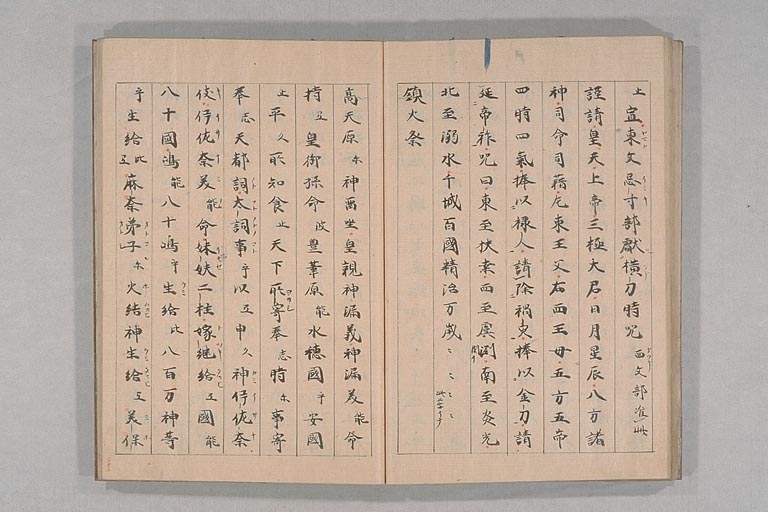 上宣東文忌寸部献横刀時咒 西文部准此
謹請皇天上帝三極大君日月星辰八方諸
神司命司籍左東王父右西王母五方五帝
四時四氣捧以禄人請除禍灾捧以金刀請
延帝祚咒曰東至扶桑西至虞渕南至炎光
北至溺水千城百國精治万歳〻〻〻
鎮火祭
高天原尓神留坐皇親神漏義神漏美能命
持弖皇御孫命波豊葦原能水穂國乎安國
止平久所知食止天下所寄奉志時尓事寄
奉志天都詞太詞事乎以弖申久神伊佐奈
伎伊佐奈美能命妹妋二柱嫁継給弖國能
八十國嶋能八十嶋乎生給比八百万神等
乎生給比弖麻奈弟子尓火結神生給弖美保